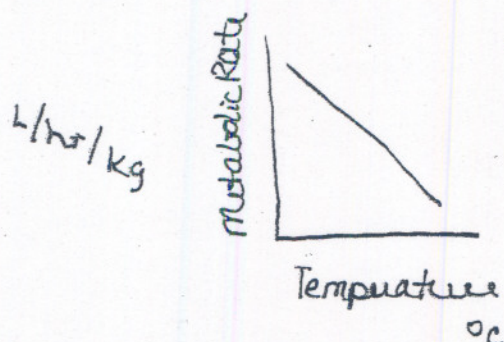 L/hr/kg
Metabolic Rate
Tempuature
°C